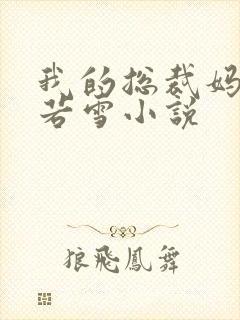 我的总裁妈
若雪小說
狼飛鳳舞